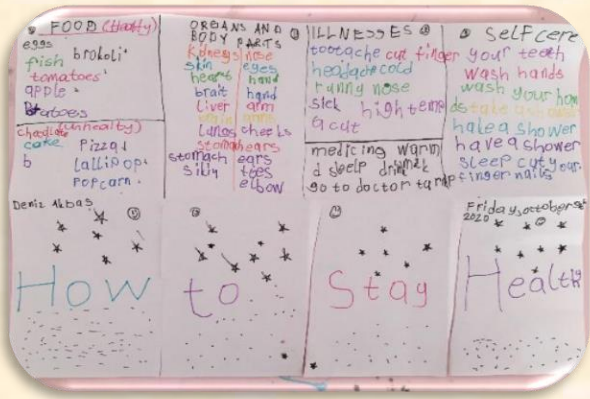 FOOD (Healthy)
eggs
fish brokoli
tomatoes
apple
Potatoes
(unhealty)
chocolate
cake Pizza
b LalliPoP
PoPcarn
ORGANS AND
BODY PARTS
Kidneys nose
skin eyes
heart hand
brait hand
liver arm
arms
Lungs cheeks
stomahears
stomach ears
toes
elbow
ILLNESSES
tootache cut finger
headache cold
runny nose
sick high temp
a cut
medicing warm
d sleelp drink
go to doctor
Self care
your teeth
wash hands
wash your han
ds take a shower
hake a shower
have a shower
sleep cut your
finger nails
Deniz Akbas
Friday, october
2020
How to Stay Health